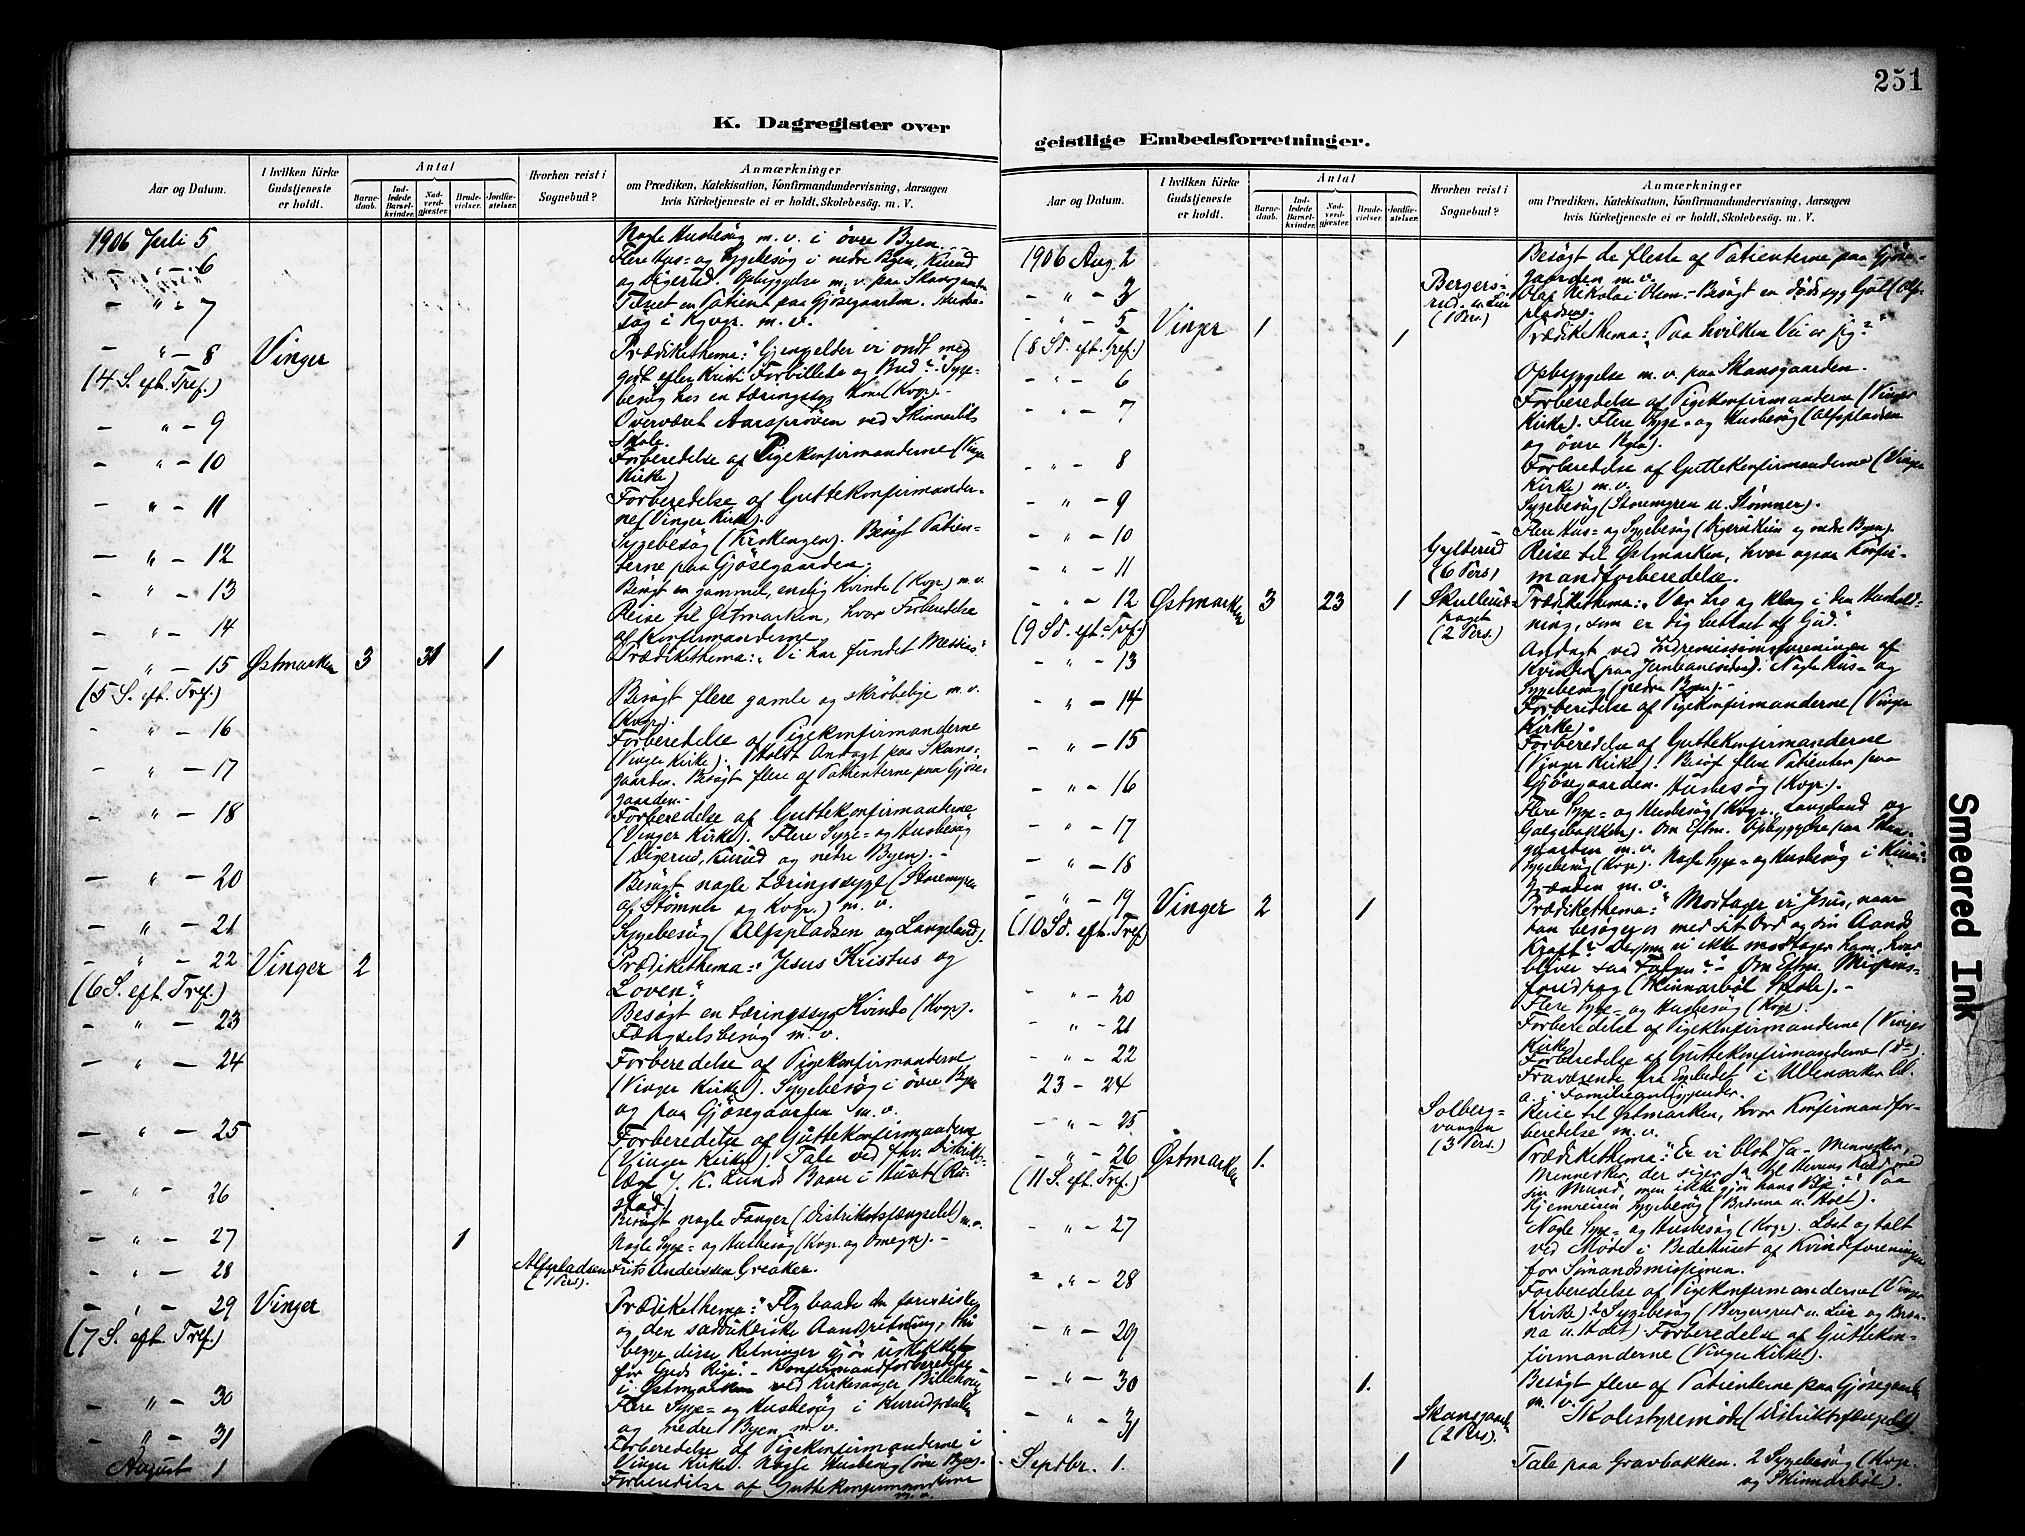 251
K. Dagregister over
geistlige Embedsforretninger.
Aar og Datum.
I hvilken Kirke Gudstjeneste er holdt.
Antal
Barnedaab.
Indledede Barselkvinder.
Nadverdgjæster.
Brudevielser.
Jordfæstelser.
Hvorhen reist i Sognebud?
Anmærkninger
om Prædiken, Katekisation, Konfirmandundervisning, Aarsagen
hvis Kirketjeneste ei er holdt, Skolebesög. m. V.
1906 Juli 5 Nogle Husbesög m. v. i övre Byen.
— " — 6 Flere Hus- og Sygebesög i nedre Byen, Kurud
og Digerud. Opbyggelse m. v. paa Skansgaarden
— " — 7 en Patient paa Gjösegaarden. Husbe-
sög i Kgvgr. m. v.
— " — 8 Vinger Prædikethema: "Gjengjelder vi ondt med
(4. S. eft. Tref.) godt efter Kristi Forbillede og Bud?" Syge-
besög hos en tæringssyg Kone (Kvgr.).-
— " — 9 Overværet Aarspröven ved Skinnarböl
Skole.
— " — 10 Forberedelse af Pigekonfirmanderne (Vinger
Kirke)
— " — 11 Forberedelse af Guttekonfirmander-
ne (Vinger Kirke).
— " — 12 Sygebesög (Krokengen). Besögt Patien-
terne paa Gjösegaarden.
— " — 13 Besögt en gammel, enslig Kvinde (Kvgr.) m. v.
— " — 14 Reise til Østmarken, hvor Forberedelse
af Konfirmanderne
— " — 15 Østmarken 3 31 1 Prædikethema: "Vi har fundet Messias"
(5 S. eft. Tref.) Besögt flere gamle og skröbelige m. v.
(Kvgr).
— " — 16 Forberedelse af Pigekonfirmanderne
— " — 17 (Vinger Kirke). Holdt Andagt paa Skans-
gaarden. Besögt flere af Patienterne paa Gjöse-
gaarden.-
— " — 18 Forberedelse af Guttekonfirmanderne
(Vinger Kirke). Flere Syge- og Husbesög
(Digerud, Kurud og nedre Byen).-
— " — 20 Besögt nogle Tæringssyge (Storemyren
af Stömner og Kvgr.) m. v.
— " — 21 Sygebesög (Alfspladsen og Langeland).
— " — 22 Vinger 2 Prædikethema: "Jesus Kristus og
(6 S. eft. Tref.) Loven."
— " — 23 Besögt en tæringssyg Kvinde (Kvgr).
Fængselsbesög m. v.
— " — 24 Forberedelse af Pigekonfirmanderne
(Vinger Kirke). Sygebesög i övre Byen
og paa Gjösegaarden m. v.
— " — 25 Forberedelse af Guttekonfirmanderne
(Vinger Kirke). Tale ved fhv. Distrikts-
læge J. K. Lunds Baare i Huset (Ru-
stad)
— " — 26 Besögt nogle Fanger (Distriktsfængselet) m. v.
— " — 27 1 Nogle Syge- og Husbesög (Kvgr. og Omegn).-
— " — 28 Alfspladsen (1 Pers). Frits Anderssen Greaker.
— " — 29 Vinger Prædikethema: "Fly baade den farisæiske
(7 S. eft. Tref.) og den sadukæiske Aandsretning, thi
begge disse Retninger gjör uskikket
for Guds Rige." - Konfirmandforberedelse
i Østmarken ved Kirkesanger
— " — 30 Flere Syge- og Husbesög i
og nedre Byen m. v.
— " — 31 Forberedelse af Pigekonfirmanderne i
Vinger Kirke. Nogle Husbesög (övre Byen).
August 1 Forberedelse af Guttekonfirmanderne
m. v.
Aar og Datum.
I hvilken Kirke Gudstjeneste er holdt.
Antal
Barnedaab.
Indledede Barselkvinder.
Nadverdgjæster.
Brudevielser.
Jordfæstelser.
Hvorhen reist i Sognebud?
Anmærkninger
om Prædiken, Katekisation, Konfirmandundervisning, Aarsagen
hvis Kirketjeneste ei er holdt, Skolebesög. m. V.
1906 Aug. 2 Besögt de fleste af Patienterne paa Gjöse-
gaarden m. v.
— " — 3 Bergersrud u. Lier (1 Pers) Olaf Nikolai Olsen.- Besögt en dödssyg Gut (Alfs-
pladsen.
— " — 5 Vinger 1 1 Prædikethema: "Paa hvilken Vei er jeg?"
(8 Sd. eft. Tref.)
— " — 6 Opbyggelse m. v. paa Skansgaarden.
— " — 7 Forberedelse af Pigekonfirmanderne (Vinger
Kirke). Flere Syge- og Husbesög (Alfspladsen
og övre Byen).
— " — 8 Forberedelse af Guttekonfirmanderne (Vinger
Kirke) m. v.
— " — 9 Sygebesög (Storemyren u. Stömner).
— " — 10 Flere Hus- og Sygebesög ( og nedre Byen).
— " — 11 Gylterud (6 Pers) Reise til Østmarken, hvor ogsaa Konfir-
mandforberedelse.
— " — 12 Østmarken 3 23 1 (2 Pers.) Prædikethema: "Vær tro og klog i den Hushold-
(9 Sd. eft. Tref.) ning, som er dig betroet af Gud."
— " — 13 Andagt ved Indremissionsforeningen af
Kvinder (paa Jernbanesiden). Nogle Hus- og
Sygebesög (nedre Byen).-
— " — 14 Forberedelse af Pigekonfirmanderne (Vinger
Kirke).
— " — 15 Forberedelse af Guttekonfirmanderne
(Vinger Kirke). Besögt flere Patienter paa
Gjösegaarden.
— " — 16 Husbesög (Kvgr.).
— " — 17 Flere Syge- og Husbesög (Kvgr., Langeland og
Galgebakken). Om Eftm. Opbyggelse paa Skans-
gaarden m. v.
— " — 18 Sygebesög (Kvgr). Nogle Syge- og Husbesög i
Grænden m. v.
— " — 19 Vinger 2 1 Prædikethema: "Modtager vi Jesus, naar
(10 Sd. eft. Tref.) han besöger os med sit Ord og sin Aands
Kraft? Dersom vi ikke modtager ham, hvad
bliver saa Fölgen?" - Om Eftm. Missions-
foredrag (Skinnarböl Skole).-
— " — 20 Flere Syge- og Husbesög (Kvgr).
— " — 21 Forberedelse af Pigekonfirmanderne (Vinger
Kirke)
— " — 22 Forberedelse af Guttekonfirmanderne (do).
23 — 24 Fraværende fra Embedet i Ullensaker bl.
a. i Familieanliggender.
— " — 25 Solbergvangen (3 Pers.) Reise til Østmarken, hvor Konfirmandfor-
beredelse m. v.
— " — 26 Østmarken 1. Prædikethema: "Er vi blot Ja-Mennesker,
(11 S. eft. Tref.) Mennesker, der siger Ja til Herrens Kald med
sin Mund, men ikke gjör hans Vilje?" Paa
Hjemreisen Sygebesög (Bröma u. Holt).
— " — 27 Nogle Syge- og Husbesög (Kvgr). Læst og talt
ved Möde i Bedehuset af Kvindeforeningen
for Sömandsmissionen.
— " — 28 Forberedelse af Pigekonfirmanderne (Vinger
Kirke). Sygebesög (Bergersrud u. Lier og
u. Holt)
— " — 29 Forberedelse af Guttekon-
firmanderne (Vinger Kirke).
— " — 30 1. Besögt flere af Patienterne paa Gjösegaarden
m. v.
— " — 31 Skansgaarden (2 Pers). Skolestyremöde (Distriktsfængselet).
Septbr. 1. 1 Tale paa Gravbakken. 2 Sygebesög (Kvgr.
og Skinnarböl).
Smeared Ink